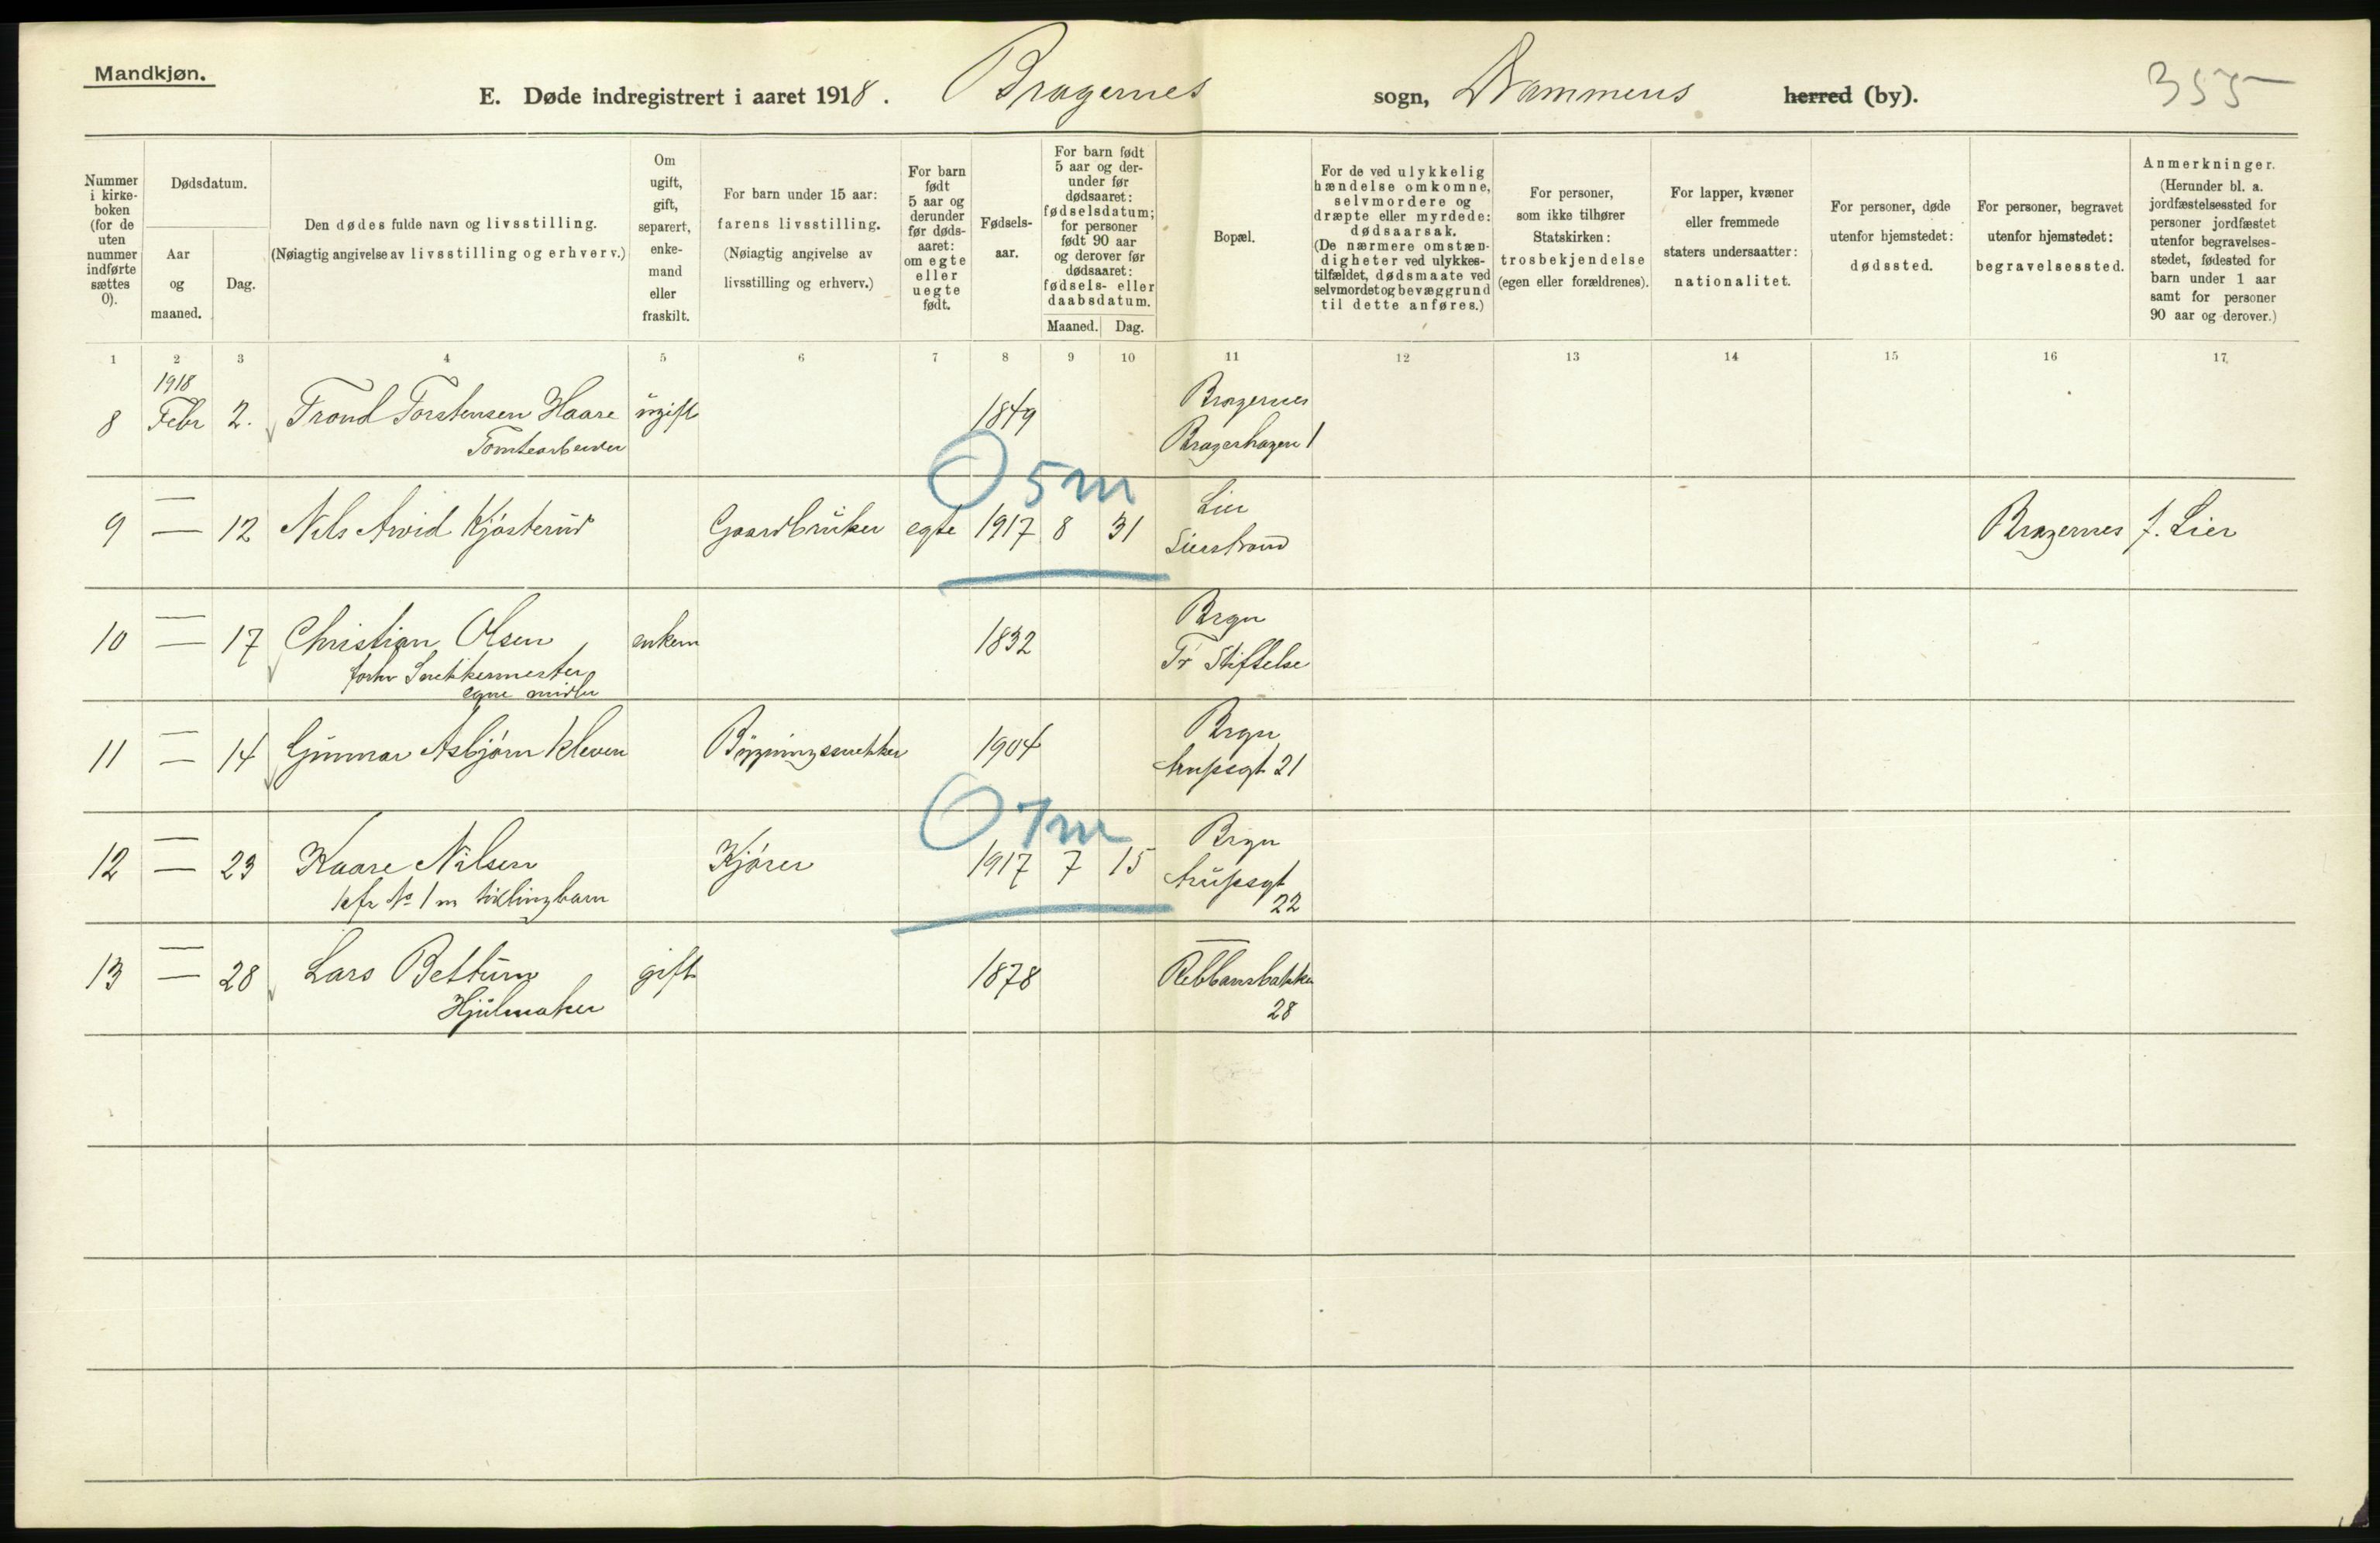 Mandkjøn.
E. Døde indregistrert i aaret 1918. Bragernes sogn, Drammens herred (by). 355
Nummer i kirke- boken (for de uten nummer indførte sættes 0).
Dødsdatum.
Aar og maaned.
Dag.
Den dødes fulde navn og livsstilling.
(Nøiagtig angivelse av livsstilling og erhverv.)
Om ugift, gift, separert, enke- mand eller fraskilt.
For barn under 15 aar: farens livsstilling. (Nøiagtig angivelse av livsstilling og erhverv.)
For barn født 5 aar og derunder før døds- aaret: om egte eller uegte født.
Fødsels- aar.
For barn født 5 aar og der- under før dødsaaret: fødselsdatum; for personer født 90 aar og derover før dødsaaret: fødsels- eller daabsdatum.
Maaned. Dag.
Bopæl.
For de ved ulykkelig hændelse omkomne, selvmordere og dræpte eller myrdede: dødsaarsak. (De nærmere omstæn- digheter ved ulykkes- tilfældet, dødsmaate ved selvmordet og bevæggrund til dette anføres.)
For personer, som ikke tilhører Statskirken: trosbekjendelse (egen eller forældrenes).
For lapper, kvæner eller fremmede staters undersaatter: nationalitet.
For personer, døde utenfor hjemstedet: dødssted.
For personer, begravet utenfor hjemstedet: begravelsessted.
Anmerkninger. (Herunder bl. a. jordfæstelsessted for personer jordfæstet utenfor begravelses- stedet, fødested for barn under 1 aar samt for personer 90 aar og derover.)
1 2 3 4 5 6 7 8 9 10 11 12 13 14 15 16 17
1918
8 Febr 2. Trond Torstensen Haare ugift 1849 Bragernes
Tomtearbeider Bragerhagen 1
O 5 m
9 — 12 Nils Arvid Kjøsterud Gaardbruker egte 1917 8 31 Lier Bragernes f. Lier
Lierstrand
10 — 17 Christian Olsen enkem 1832 Brgn
forhv Snekkermester Tr Stiftelse
egne midler
11 — 14 Gunnar Asbjørn Kleven Bygningssnekker 1904 Brgn
Arupsgt 21
O 7 m
12 — 23 Kaare Nilsen Kjører 1917 7 15 Brgn
kfr No 1 m tvillingbarn Arupsgt
22
13 — 28 Lars Bettum gift 1878 — Rebbansbakken
Hjulmaker 28